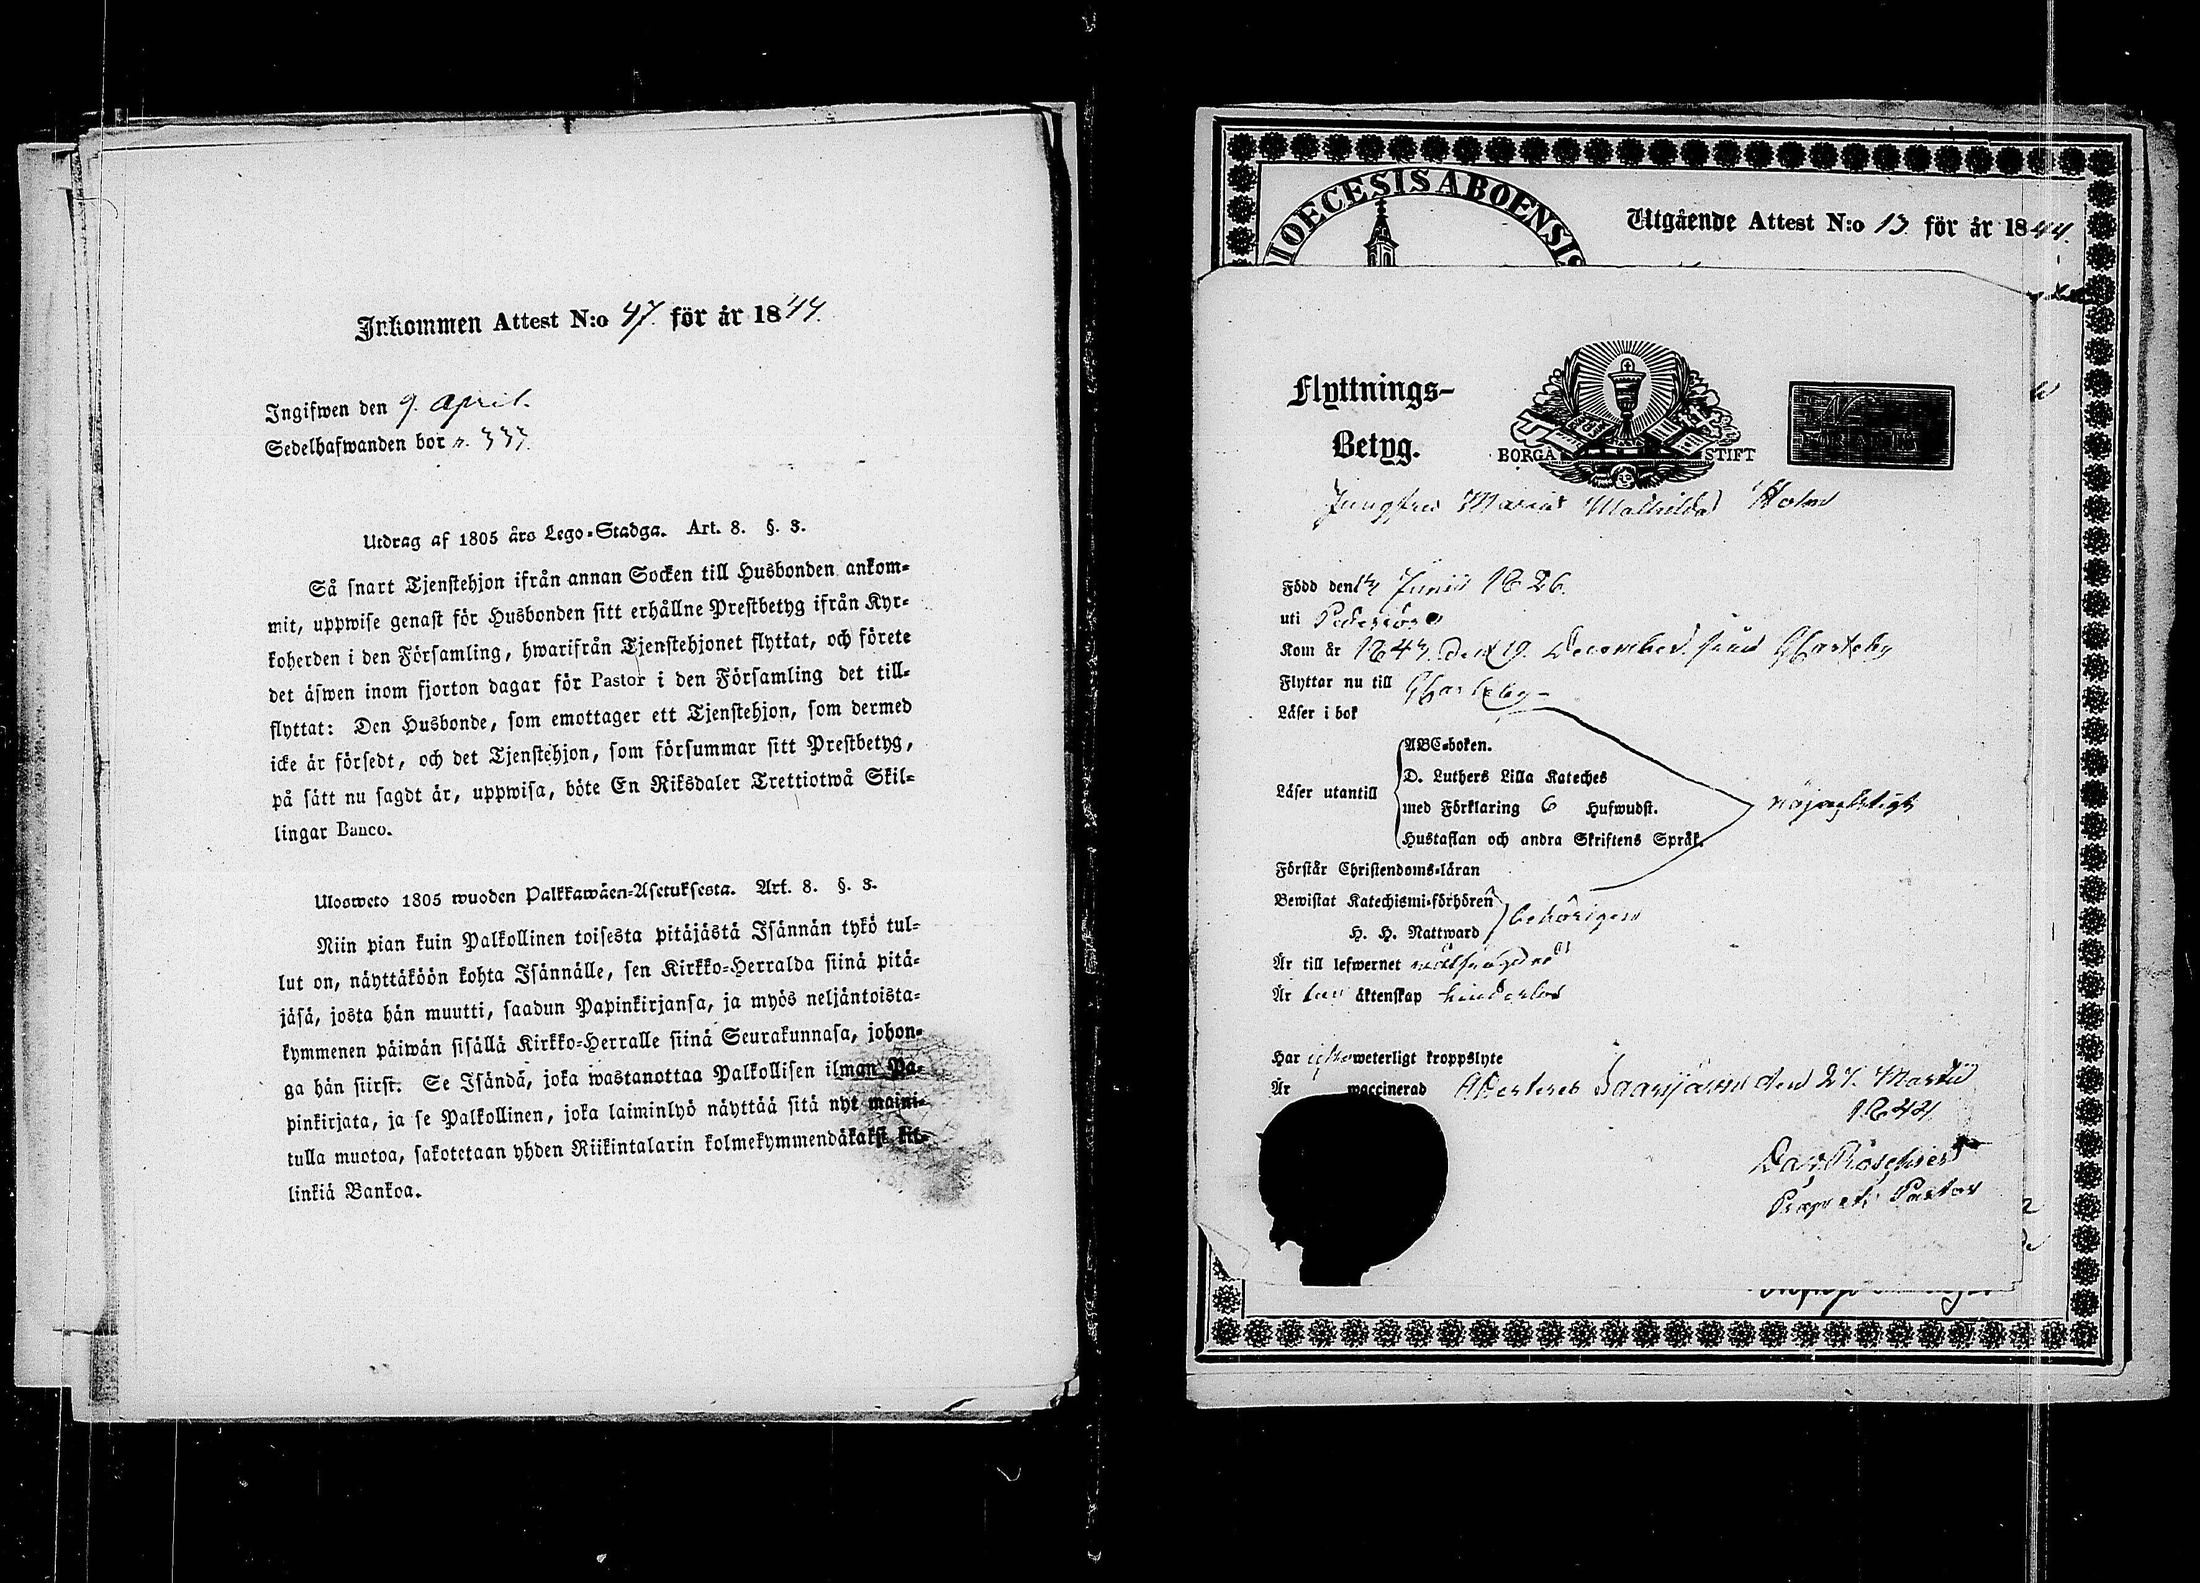 Inkommen Attest N:o 47. för år 1844.
Ingifwen den 9. April.
Sedelhafwanden bor n. 333.
Utdrag af 1805 års Lego-Stadga. Art. 8. §. 3.
Så snart Tjenstehjon ifrån annan Socken till Husbonden ankom-
mit, uppwise genast för Husbonden sitt erhållne Prestbetyg ifrån Kyr-
koherden i den Församling, hwarifrån Tjenstehjonet flyttat, och förete
det äfwen inom fjorton dagar för Pastor i den Församling det till-
flyttat: Den Husbonde, som emottager ett Tjenstehjon, som dermed
icke är försedt, och det Tjenstehjon, som försummar sitt Prestbetyg,
på sätt nu sagdt är, uppwisa, böte En Riksdaler Trettiotwå Skil-
lingar Banco.
Ulosweto 1805 wuoden Palkkawäen-Asetuksesta. Art. 8. §. 3.
Niin pian kuin Palkollinen toisesta pitäjästä Isännän tykö tul-
lut on, näyttäköön kohta Isännälle, sen Kirkko-Herralda siinä pitä-
jäsä, josta hän muutti, saadun Papinkirjansa, ja myös neljäntoista-
kymmenen päiwän sisällä Kirkko-Herralle siinä Seurakunnasa, johon-
ga hän siirst. Se Isändä, joka wastanottaa Palkollisen ilman Pa-
pinkirjata, ja se Palkollinen, joka laiminlyö näyttää sitä nyt maini-
tulla muotoa, sakotetaan yhden Riikintalarin kolmekymmendäkaksi kil-
linkiä Bankoa.
DIOECESIS ABOENSIS
Utgående Attest N:o 13. för år 1844.
Flyttnings-
Betyg.
BORGÅ STIFT
Jungfru Maria Mathilda Holm
Född den 14 Junii 1826.
uti Pedersöre
Kom år 1843 den 19 December från GCarleby
Flyttar nu till GCarleby
Läser i bok
Läser utantill
ABC-boken.
D. Luthers Lilla Kateches
med Förklaring 6 Hufwudst.
Hustaflan och andra Skriftens Språk.
nöjagktigt
Förstår Christendoms-läran
Bewistat Katechismi-förhören
H. H. Nattward
behörigen
Är till lefwernet välfrägdad
Är till äktenskap hinderlös
Har icke weterligt kroppslyte
Är waccinerad Attesteras Saarijärvi den 27. Martii
1844
Dav. Roschier
Præp. et. Pastor